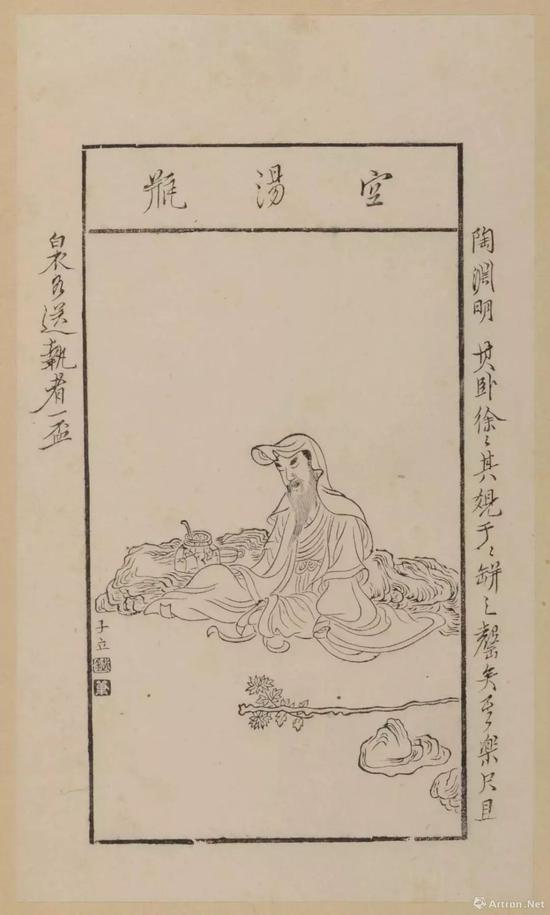 空湯瓶
陶淵明 其卧徐〻其覺于〻缾之罄矣樂只且
白衣送執者一盃
子立
Artron.Net